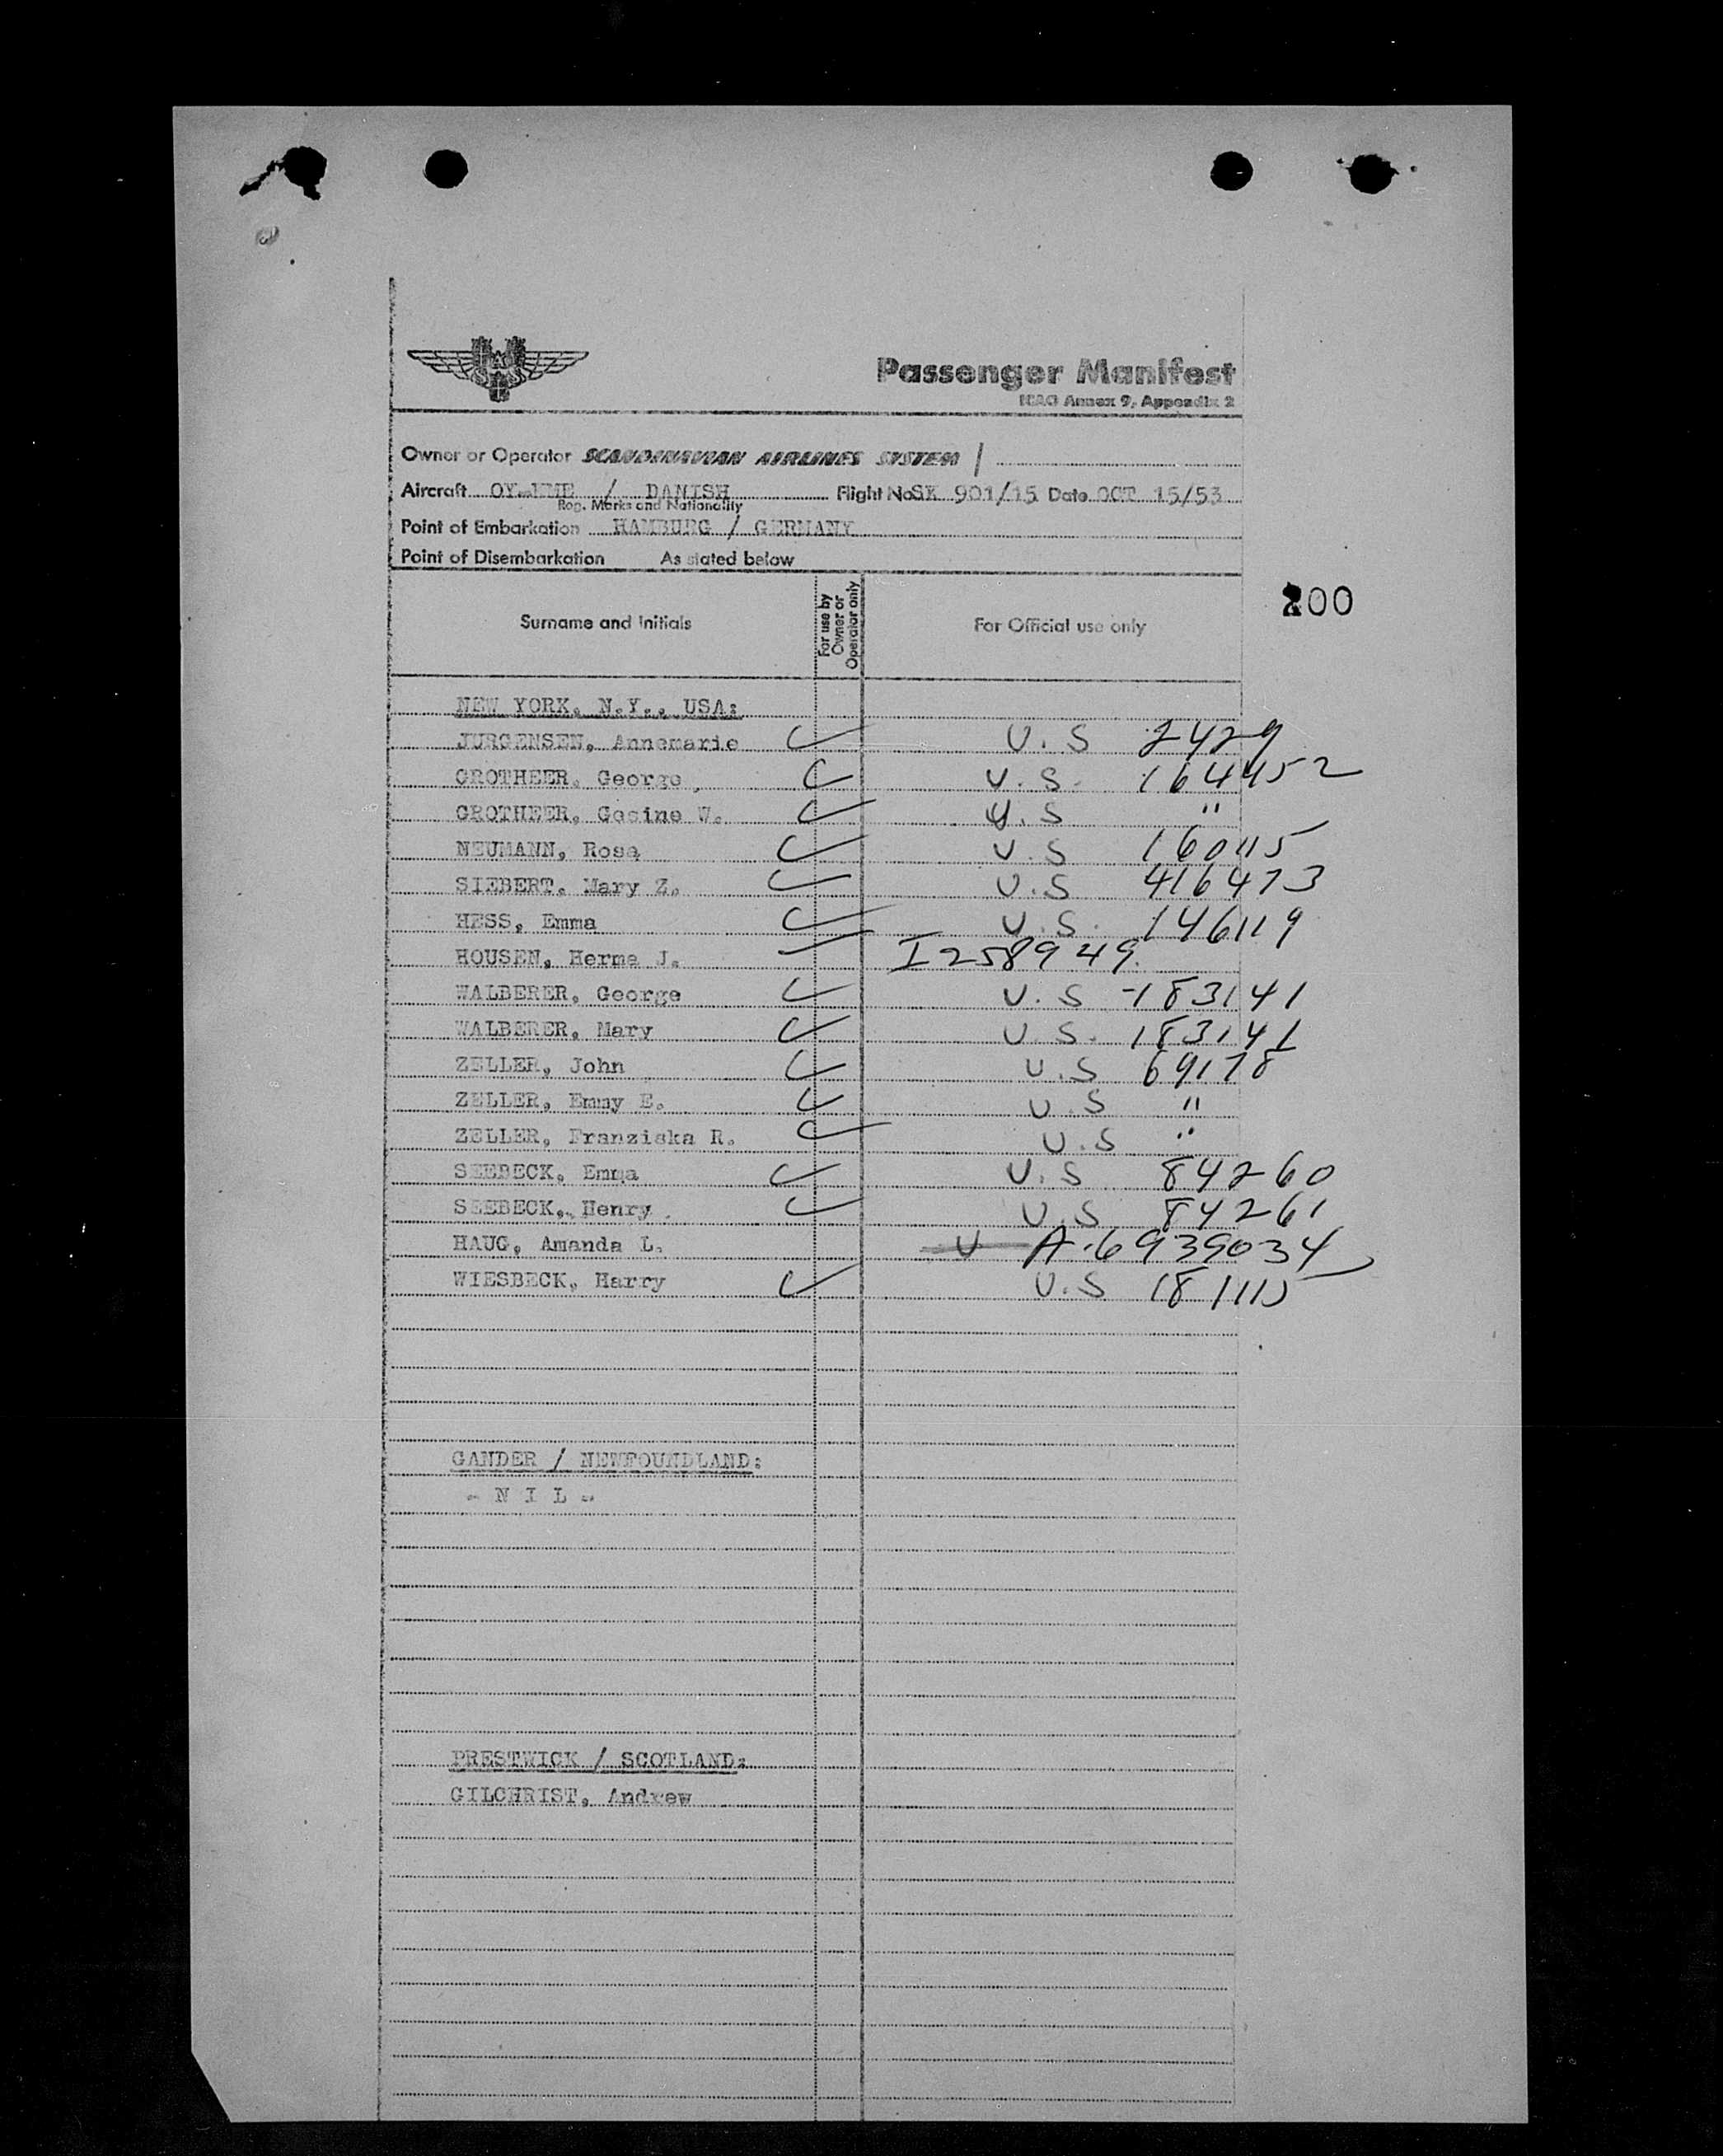 Passenger Manifest
ICAO Annex 9, Appendix 2
Owner or Operator SCANDINAVIAN AIRLINES SYSTEM /
Aircraft / DANISH Flight No SK 901/15 Date OCT 15/53
Reg. Marks and Nationality
Point of Embarkation HAMBURG / GERMANY
Point of Disembarkation As stated below
Surname and Initials For use by Owner or Operator only For Official use only
200
NEW YORK, N.Y., USA:
JURGENSEN, Annemarie U.S 2429
GROTHEER, George U.S. 164452
GROTHEER, Gesine W. U.S "
NEUMANN, Rosa U.S 160115
SIEBERT, Mary Z. U.S 416473
HESS, Emma U.S. 146119
HOUSEN, Herma J. I 2589 49.
WALBERER, George U.S 183141
WALBERER, Mary U.S. 183141
ZELLER, John U.S 69178
ZELLER, Emmy E. U.S "
ZELLER, Franziska R. U.S "
SEEBECK, Emma U.S 84260
SEEBECK, Henry U.S 84261
HAUG, Amanda L. U A.6939034
WIESBECK, Harry U.S
GANDER / NEWFOUNDLAND:
- N I L -
PRESTWICK / SCOTLAND:
GILCHRIST, Andrew